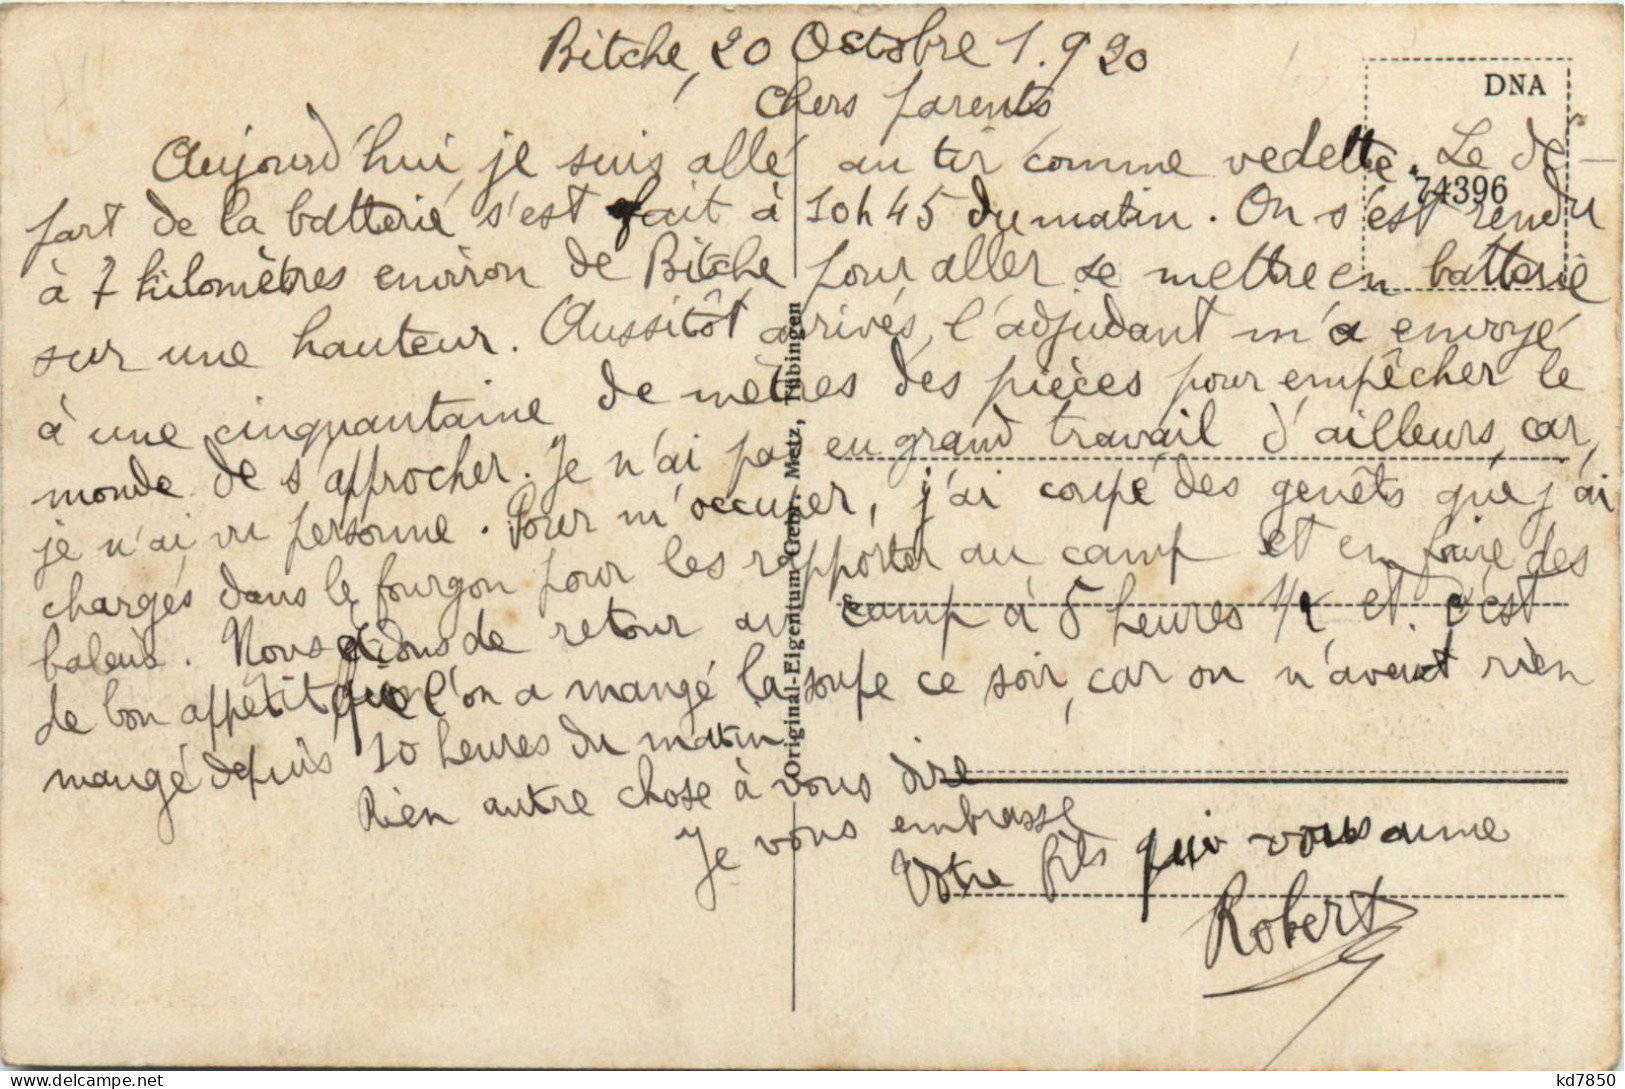 Bitche, 20 Octobre 1.920
DNA
Chers parents
Aujourd'hui, je suis allé au tir comme vedette. Le dé-
74396
part de la batterie s'est fait à 10h45 du matin. On s'est rendu
à 7 kilomètres environ de Bitche pour aller se mettre en batterie
sur une hauteur. Aussitôt arrivés, l'adjudant m'a envoyé
à une cinquantaine de mètres des pièces pour empêcher le
monde de s'approcher. Je n'ai pas eu grand travail d'ailleurs, car,
je n'ai vu personne. Pour m'occuper, j'ai coupé des genêts que j'ai
chargés dans le fourgon pour les rapporter au camp et en faire des
balais. Nous étions de retour au camp à 5 heures 1/2 et c'est
de bon appétit que l'on a mangé la soupe ce soir, car on n'avait rien
mangé depuis 10 heures du matin.
Rien autre chose à vous dire
Je vous embrasse
Votre fils qui vous aime
Robert
Original-Eigentum Gebr. Metz, Tübingen
kd7850